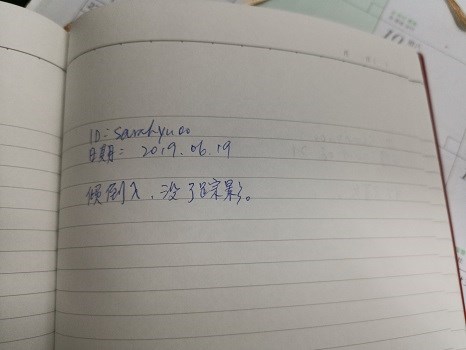 ID: Sarahyuoo
日期: 2019.06.19
倾倒入，没了踪影。